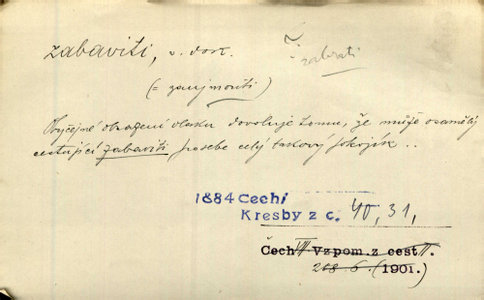 zabaviti, v. dok.
Č zabrati
(= zaujmouti)
Obyčejné obsazení vlaku dovoluje tomu, že může osamělý
cestující zabaviti pro sebe celý takový pokojík..
1884 Čechi
Kresby z c. 40, 31,
Čech VII Vzpom. z cest II.
208 6. (1901.)